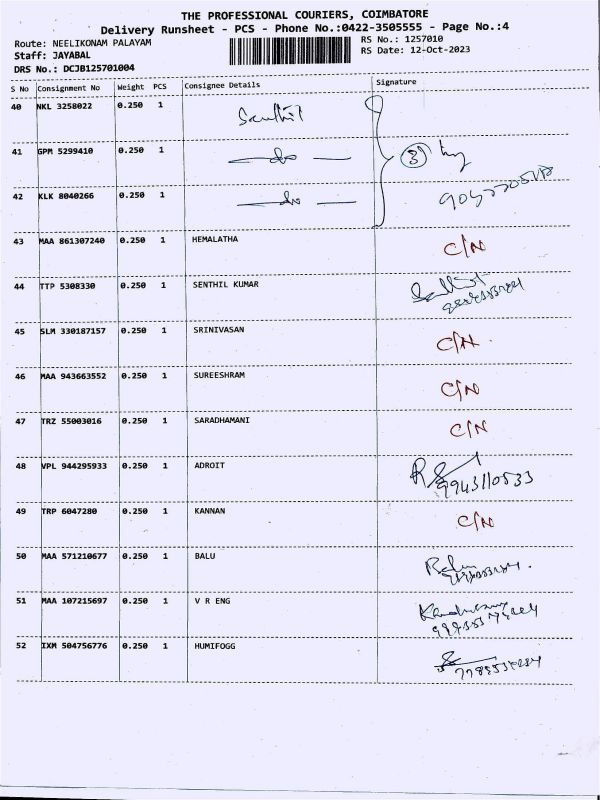 THE PROFESSIONAL COURIERS, COIMBATORE
Delivery Runsheet - PCS - Phone No.:0422-3505555 - Page No.:4
Route: NEELIKONAM PALAYAM RS No.: 1257010
Staff: JAYABAL RS Date: 12-Oct-2023
DRS No.: DCJB125701004
S No Consignment No Weight PCS Consignee Details Signature
40 NKL 3258022 0.250 1 Senthil
41 GPM 5299410 0.250 1 — do — 3
42 KLK 8040266 0.250 1 — do —
43 MAA 861307240 0.250 1 HEMALATHA C/N
44 TTP 5308330 0.250 1 SENTHIL KUMAR
45 SLM 330187157 0.250 1 SRINIVASAN C/N.
46 MAA 943663552 0.250 1 SUREESHRAM C/N
47 TRZ 55003016 0.250 1 SARADHAMANI C/N
48 VPL 944295933 0.250 1 ADROIT 9943110533
49 TRP 6047280 0.250 1 KANNAN C/N
50 MAA 571210677 0.250 1 BALU
51 MAA 107215697 0.250 1 V R ENG
52 IXM 504756776 0.250 1 HUMIFOGG